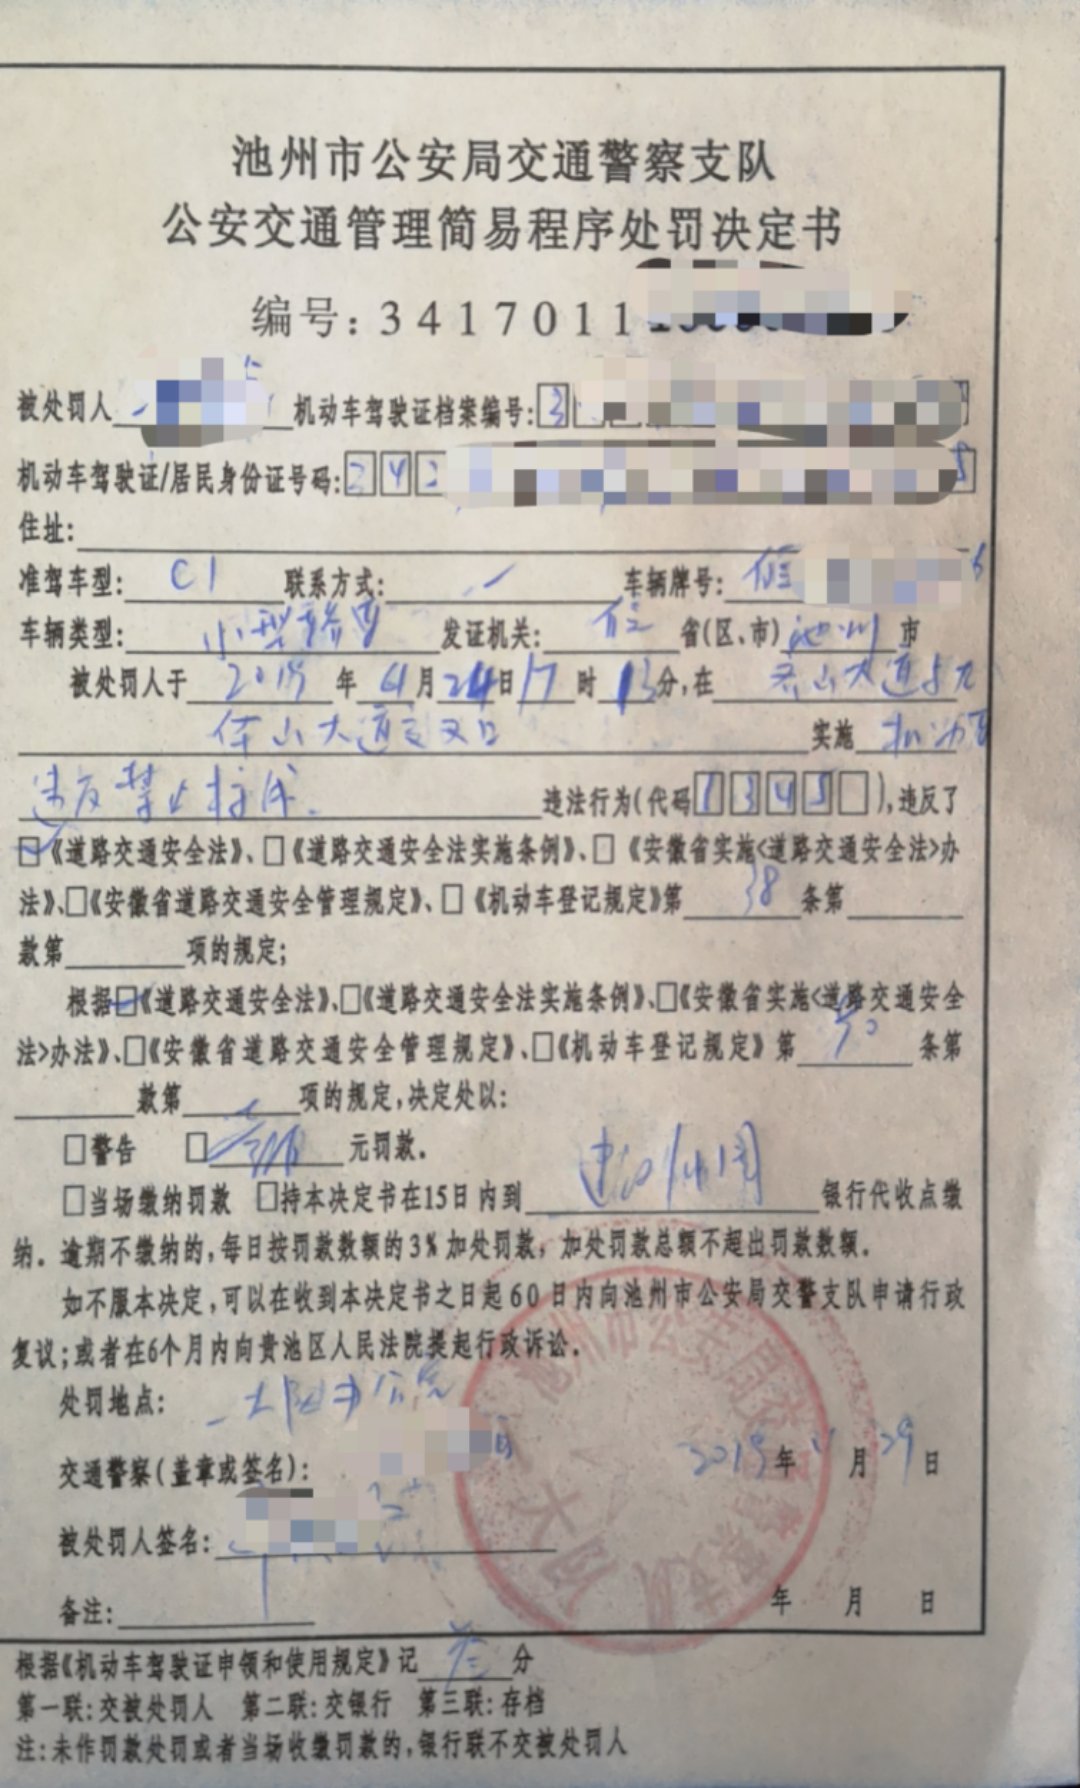 池州市公安局交通警察支队
公安交通管理简易程序处罚决定书
编号:3417011
被处罚人 机动车驾驶证档案编号:3
机动车驾驶证/居民身份证号码:342 8
住址:
准驾车型: C1 联系方式: 一 车辆牌号:
车辆类型: 小型轿車 发证机关: 省(区、市) 池州 市
被处罚人于 2019 年 4月24日17 时 13分,在 大道与九
华山大道交叉口 实施 机动车
违反禁止标线 违法行为(代码1345),违反了
☑《道路交通安全法》、□《道路交通安全法实施条例》、□《安徽省实施<道路交通安全法>办
法》、□《安徽省道路交通安全管理规定》、□《机动车登记规定》第 38 条第
款第 项的规定;
根据☑《道路交通安全法》、□《道路交通安全法实施条例》、□《安徽省实施<道路交通安全
法>办法》、□《安徽省道路交通安全管理规定》、□《机动车登记规定》第 90 条第
款第 项的规定,决定处以:
□警告 □ 元罚款.
□当场缴纳罚款 □持本决定书在15日内到 银行代收点缴
纳.逾期不缴纳的,每日按罚款数额的3%加处罚款,加处罚款总额不超出罚款数额.
如不服本决定,可以在收到本决定书之日起60日内向池州市公安局交警支队申请行政
复议;或者在6个月内向贵池区人民法院提起行政诉讼.
处罚地点: 一大队办公室
交通警察(盖章或签名): 2019年 月29日
被处罚人签名:
备注: 年 月 日
根据《机动车驾驶证申领和使用规定》记 叁 分
第一联:交被处罚人 第二联:交银行 第三联:存档
注:未作罚款处罚或者当场收缴罚款的,银行联不交被处罚人
池州市公安局交通警察支队 大队